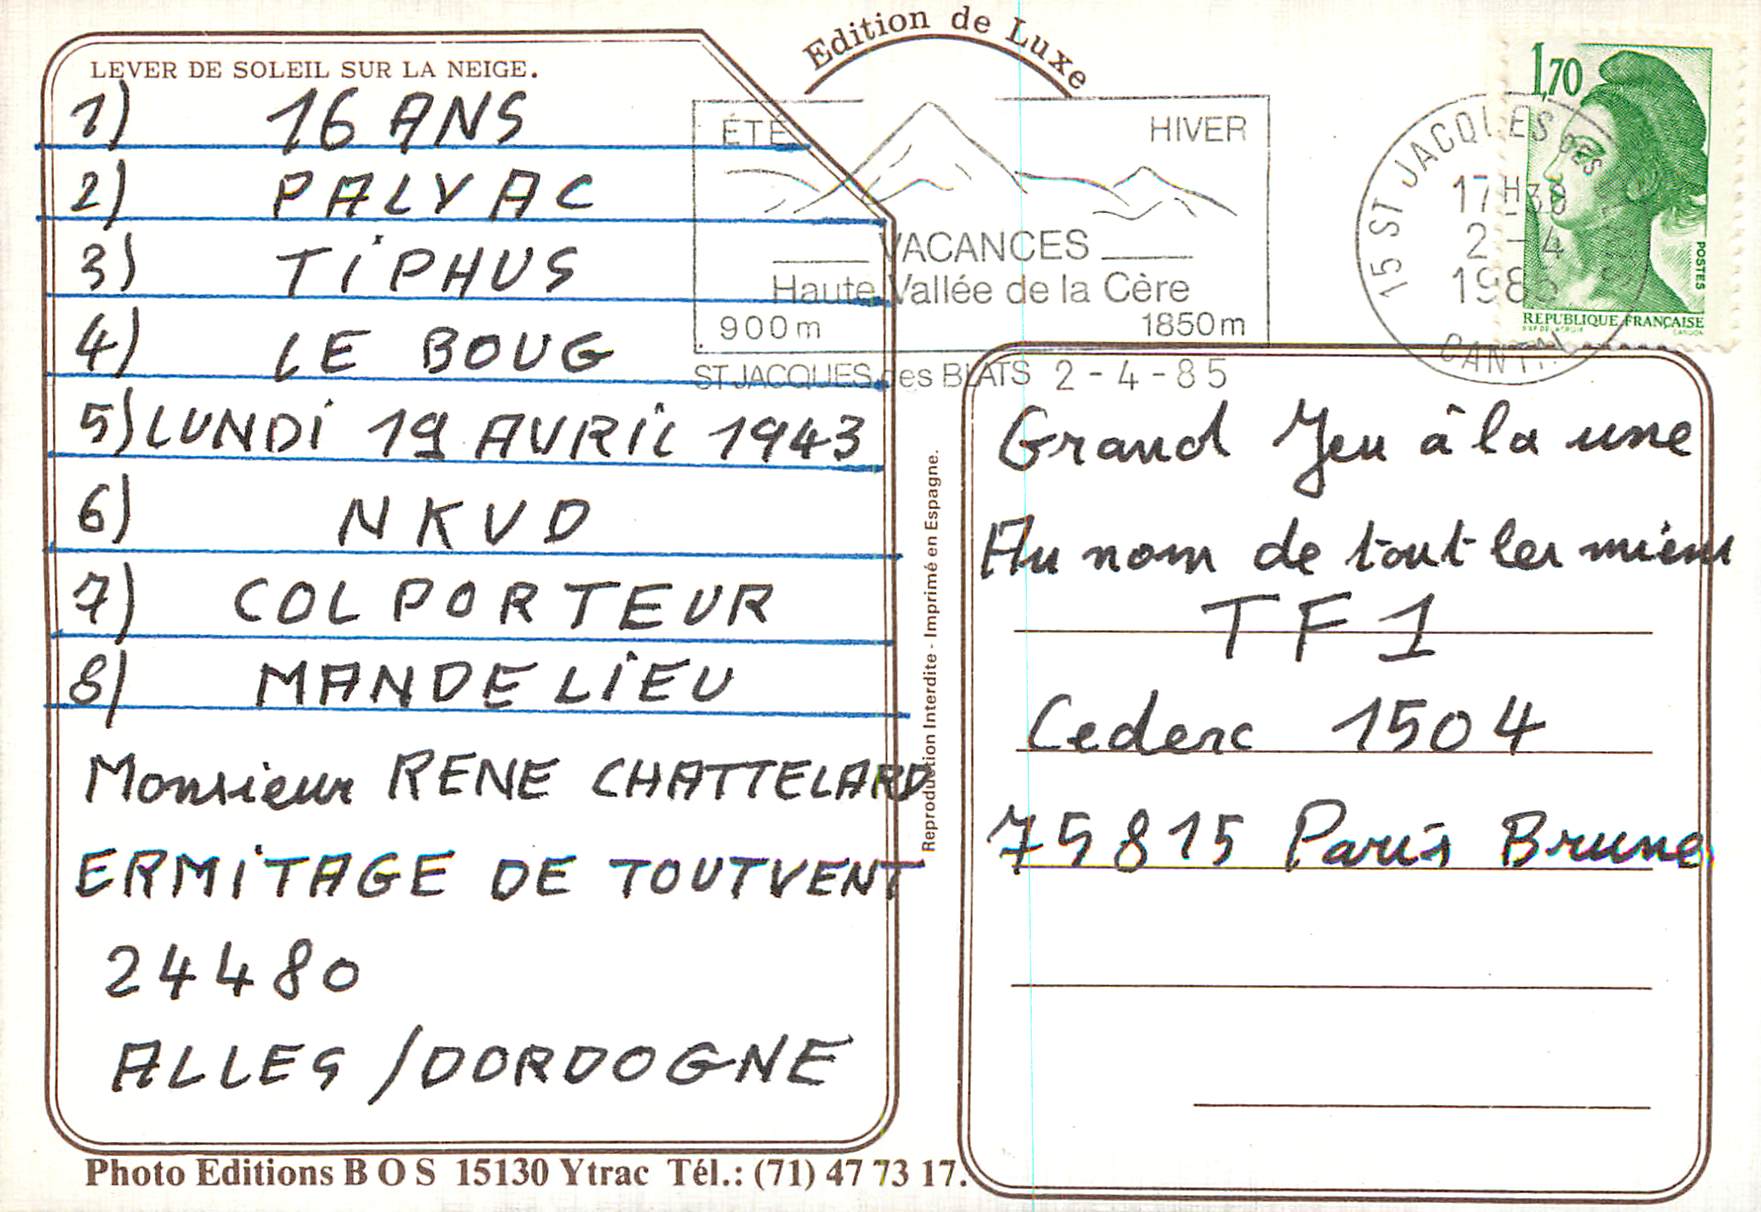 Edition de Luxe
LEVER DE SOLEIL SUR LA NEIGE.
1) 16 ANS
2) PALVAC
3) TiPHUS
4) LE BOUG
5) LUNDi 19 AVRiL 1943
6) NKVD
7) COLPORTEUR
8) MANDELiEU
Monsieur RENE CHATTELARD
ERMiTAGE DE TOUTVENT
24480
ALLES /DORDOGNE
Photo Editions BOS 15130 Ytrac Tél.: (71) 47 73 17.
Reproduction Interdite - Imprimé en Espagne.
ÉTÉ HIVER
VACANCES
Haute Vallée de la Cère
900m 1850m
ST JACQUES des BLATS 2-4-85
15 ST JACQUES DES
17H30
2-4
1985
CANTAL
1,70
POSTES
REPUBLIQUE FRANÇAISE
Grand Jeu à la une
Au nom de tout les miens
TF1
Cedex 1504
75815 Paris Brune